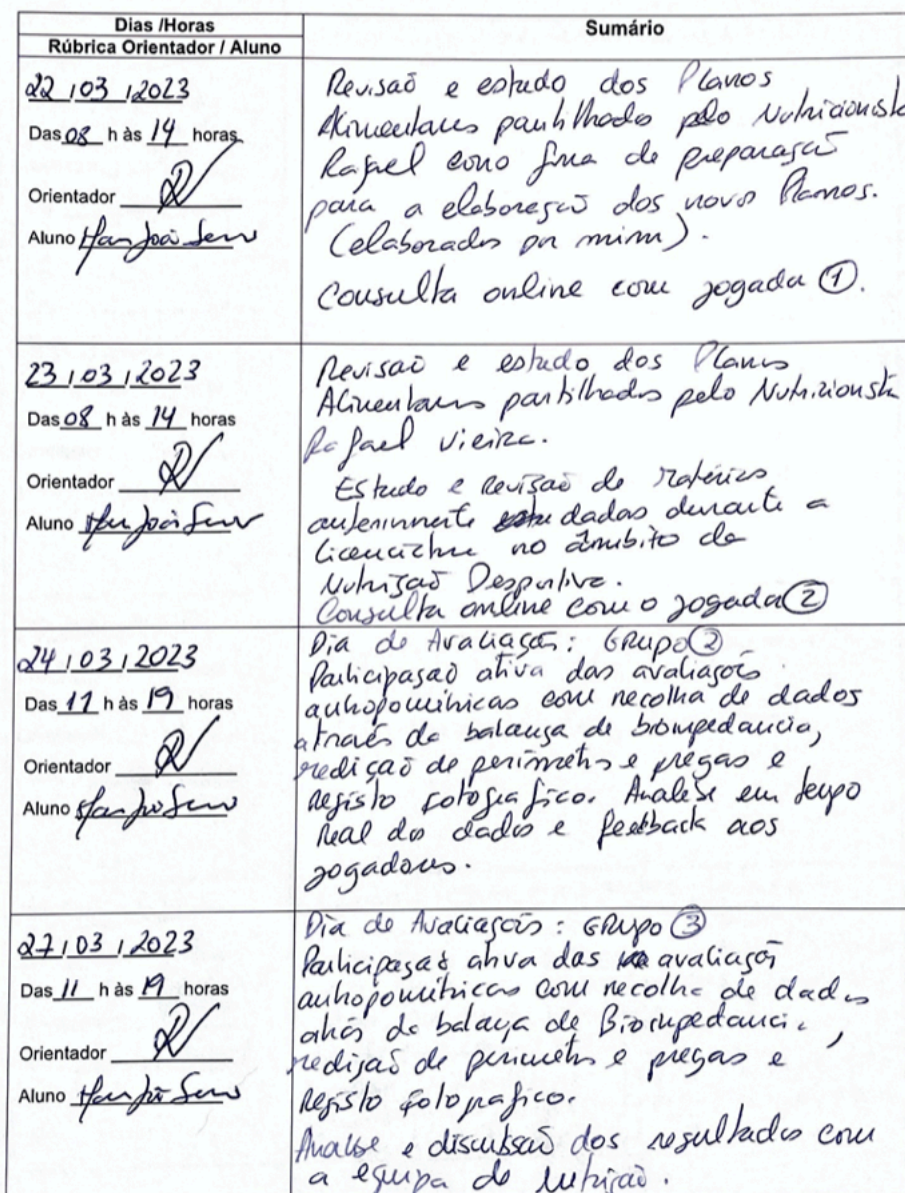 Dias /Horas
Rúbrica Orientador / Aluno
Sumário
22 / 03 / 2023
Das 08 h às 14 horas
Orientador
Aluno
Revisaõ e estudo dos Planos
Alimentares partilhados pelo Nutricionista
Rafael como forma de preparaçaõ
para a elaboraçaõ dos novos Planos.
(elaborados por mim).
Consulta online com jogador ①.
23 / 03 / 2023
Das 08 h às 14 horas
Orientador
Aluno
Revisaõ e estudo dos Planos
Alimentares partilhados pelo Nutricionista
Rafael Vieira.
Estudo e Revisaõ de Matérias
anteriormente dadas durante a
licenciatura no âmbito da
Nutriçaõ Desportiva.
Consulta online com o jogador ②
24 / 03 / 2023
Das 11 h às 19 horas
Orientador
Aluno
Dia de Avaliações: GRUPO ②
Participaçaõ ativa das avaliações
antropométricas com recolha de dados
através da balança de bioimpedancia,
mediçaõ de perimetros e pregas e
registo fotografico. Analise em tempo
real dos dados e feedback aos
jogadores.
27 / 03 / 2023
Das 11 h às 19 horas
Orientador
Aluno
Dia de Avaliações: GRUPO ③
Participaçaõ ativa das avaliações
antropométricas com recolha de dados
através da balança de Bioimpedancia,
mediçaõ de perimetros e pregas e
Registo fotografico.
Analise e discussaõ dos resultados com
a equipa de nutriçaõ.